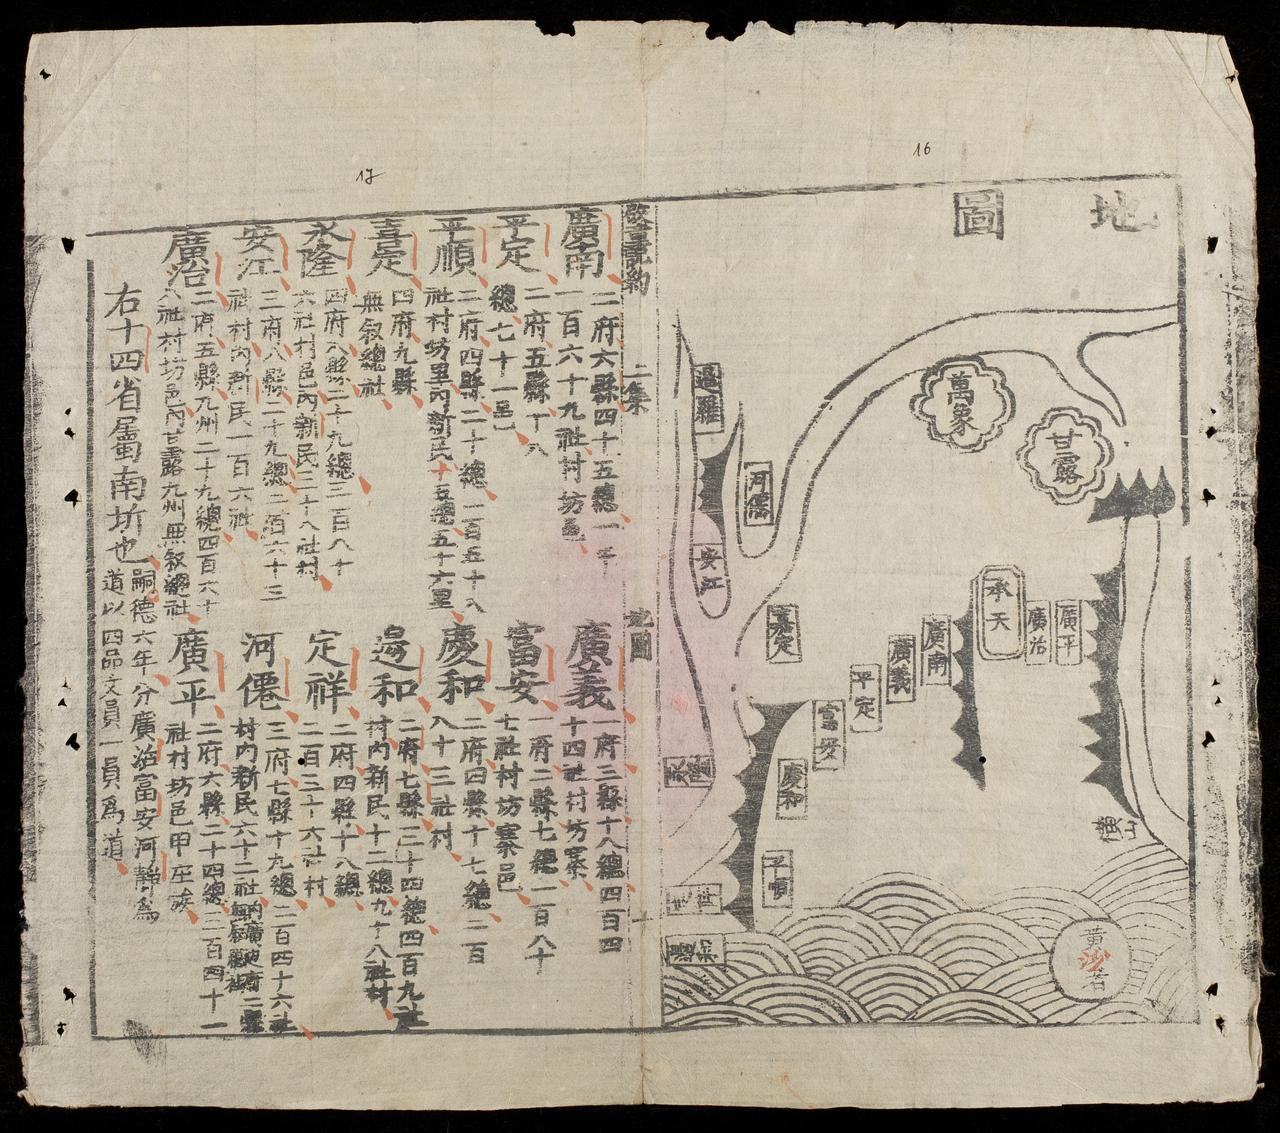 16
地圖
萬象
甘露
暹羅
河僊
安江
嘉定
承天
廣治
廣平
廣南
廣義
平定
富安
慶和
平順
永隆
橫山
黃沙渚
二集
地圖
十
17
廣南
二府六縣四十五總一千
一百六十九社村坊邑
平定
二府五縣十八
總七十一邑
平順
二府四縣二十總二百五十八
社村坊里內新民十五總五十六里
嘉定
四府九縣
無叙總社
永隆
四府八縣二十九總二百八十
六社村邑內新民二十八社村
安江
三府八縣二十九總二百六十三
社村內新民一百六社
廣治
二府五縣九州二十九總四百六十
八社村坊邑內甘露九州無叙總社
廣義
一府三縣十八總四百四
十四社村坊寨
富安
一府二縣七總二百八十
七社村坊寨邑
慶和
二府四縣十七總二百
八十三社村
邊和
二府七縣三十四總四百九社
村內新民十二總九十八社村
定祥
二府四縣十八總
二百三十六社村
河僊
三府七縣十九總二百四十六社
村內新民六十二社
廣平
二府六縣二十四總二百四十一
社村坊邑甲庄族
右十四省屬南圻也
嗣德六年分廣治富安河靜爲
道以四品文員一員爲道